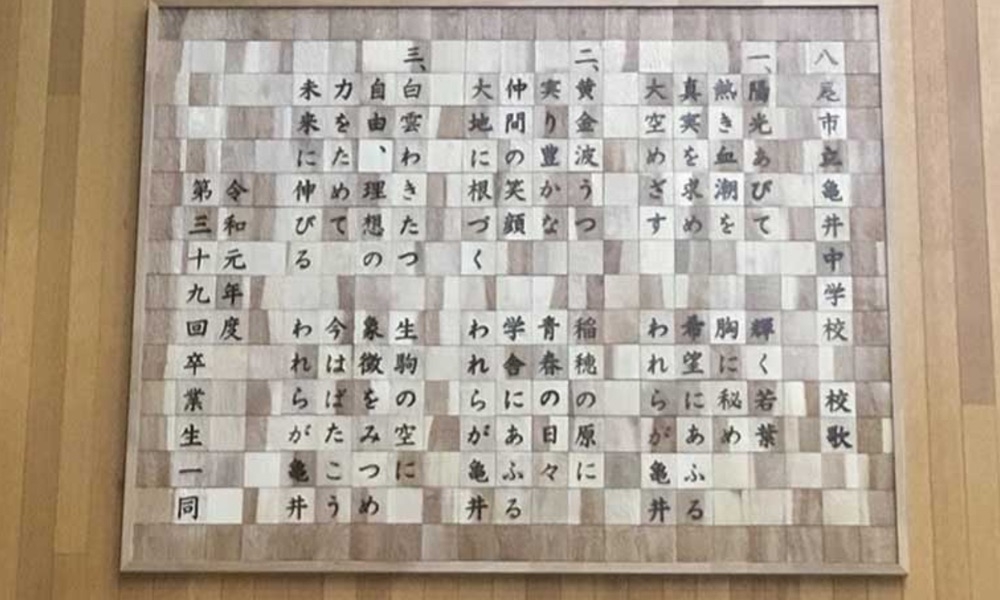 八尾市立亀井中学校　校歌
一、陽光あびて　輝く若葉
熱き血潮を　胸に秘め
真実を求め　希望にあふる
大空めざす　われらが亀井
二、黄金波うつ　稲穂の原に
実り豊かな　青春の日々
仲間の笑顔　学舎にあふる
大地に根づく　われらが亀井
三、白雲わきたつ　生駒の空に
自由、理想の　象徴をみつめ
力をためて　今はばたこう
未来に伸びる　われらが亀井
令和元年度
第三十九回卒業生一同